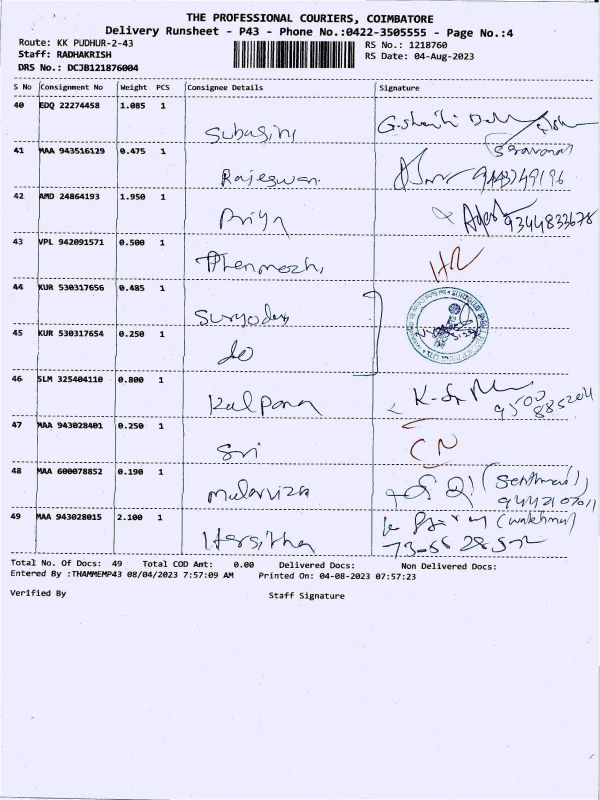 THE PROFESSIONAL COURIERS, COIMBATORE
Delivery Runsheet - P43 - Phone No.:0422-3505555 - Page No.:4
Route: KK PUDHUR-2-43
RS No.: 1218760
Staff: RADHAKRISH
RS Date: 04-Aug-2023
DRS No.: DCJB121876004
S No Consignment No Weight PCS Consignee Details Signature
40 EDQ 22274458 1.085 1
Subasiny
41 MAA 943516129 0.475 1
Saravanan
Rajeswari 9443749196
42 AMD 24864193 1.950 1
Priya 9344833678
43 VPL 942091571 0.500 1
Thenmozhi HR
44 KUR 530317656 0.485 1
Suryoday
45 KUR 530317654 0.250 1
do
46 SLM 325404110 0.800 1
Kalpana
47 MAA 943028401 0.250 1
Sri CN
48 MAA 600078852 0.190 1
49 MAA 943028015 2.100 1
(watchman)
Harsitha
Total No. Of Docs: 49 Total COD Amt: 0.00 Delivered Docs: Non Delivered Docs:
Entered By :THAMMEMP43 08/04/2023 7:57:09 AM Printed On: 04-08-2023 07:57:23
Verified By Staff Signature